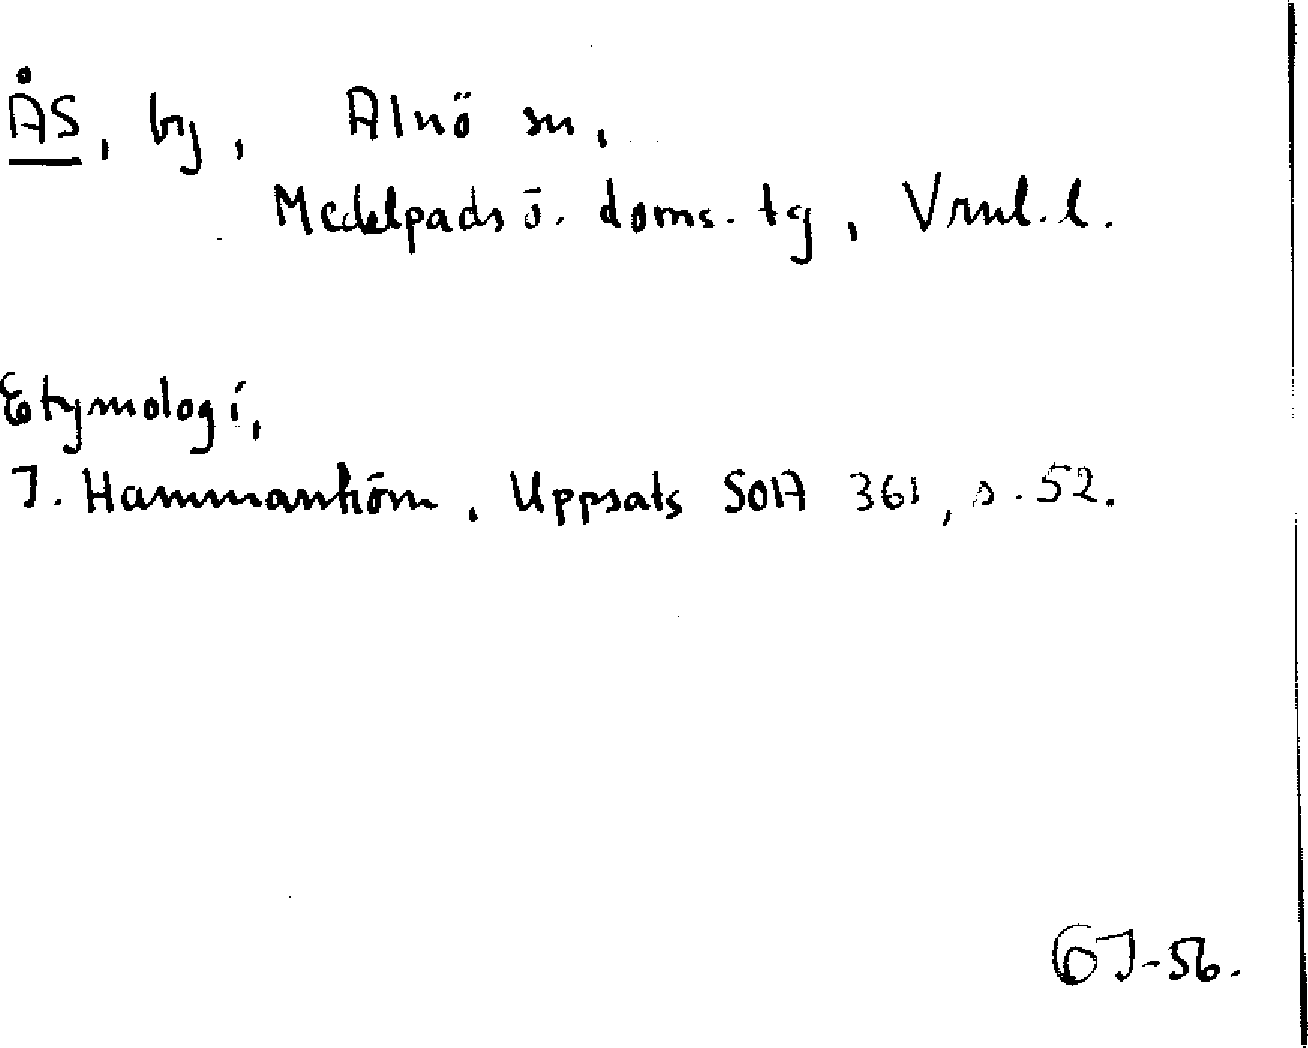 ÅS, by, Alnö sn,
Medelpads ö. doms. tg, Vrnl. l.
Etymologi,
I. Hammarström, Uppsats SOA 361, s. 52.
GJ-56.